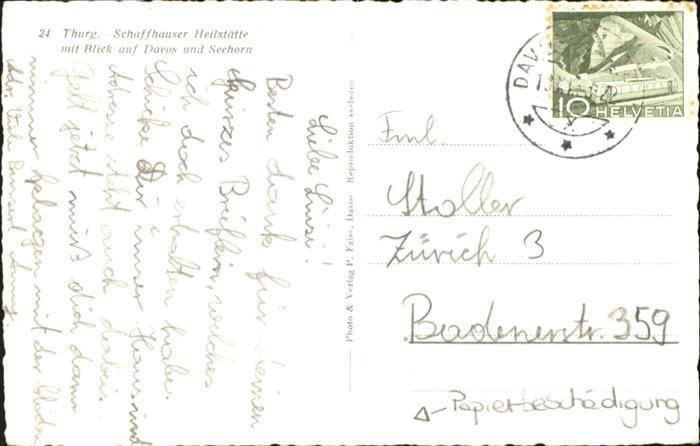 24 Thurg. - Schaffhauser Heilstätte
mit Blick auf Davos und Seehorn
Liebe Luise!
Besten dank für deinen
kurzes Brieflein, welches
ich dich erhalten habe.
Schicke Dir unser Haus und
Adresse steht auch dabei.
Geht jetzt muß dich dann
nimmer plagen mit der
Photo & Verlag P. Faiss, Davos Reproduktion verboten
DAVOS
10 HELVETIA
Frl.
Stoller
Zürich 3
Badenerstr. 359
Papierbeschädigung